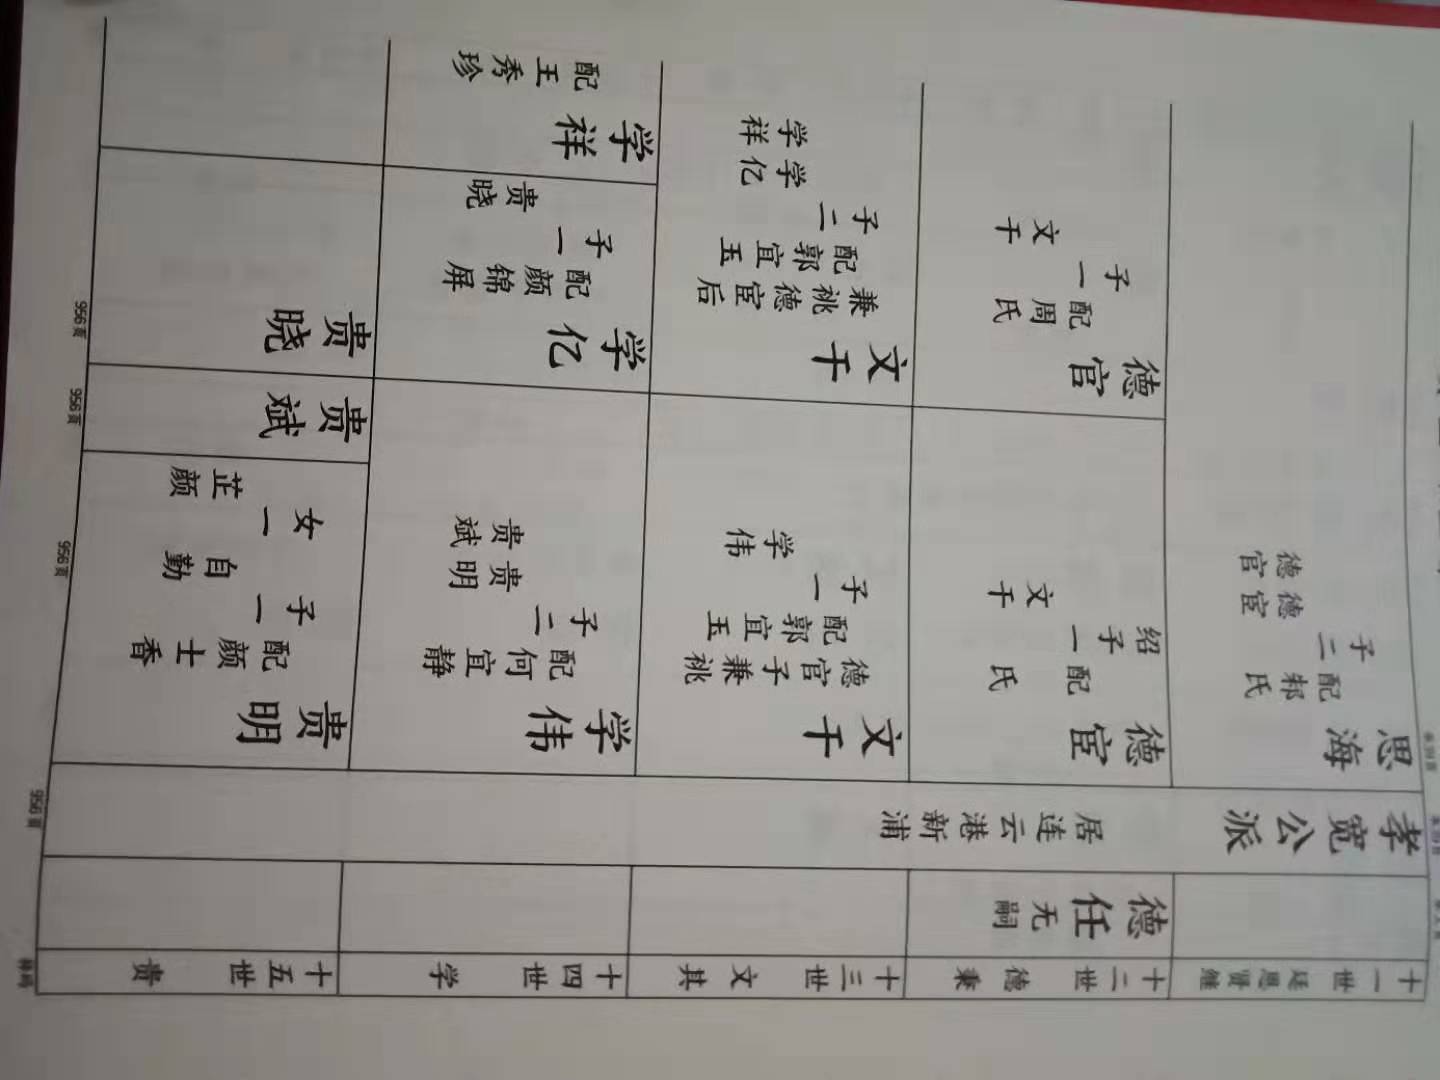 十一世 廷思贤继
孝宽公派
居连云港新浦
思海
配氏
子二
德宦
德官
十二世 德秉
德任
无嗣
德宦
配 氏
绍子一
文千
德官
配周氏
子一
文千
十三世 文其
文千
德官子兼祧
配郭宜玉
子一
学伟
文千
兼祧德宦后
配郭宜玉
子二
学亿
学祥
十四世 学
学伟
配何宜静
子二
贵明
贵斌
学亿
配颜锦屏
子一
贵晓
学祥
配王秀珍
十五世 贵
贵明
配颜士香
子一
自勤
女一
芷颜
贵斌
贵晓
956页
956页
956页
956页